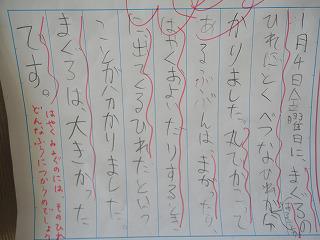 1月4日金曜日に、まぐろの
ひれにとくべつなひれが
かりました。丸でかこって
あるぶぶんは、まがったり、
はやくおよいだりするとき
に出てくるひれだという
ことがわかりました。
まぐろは大きかった
です。
はやくおよぐのには、そのひれ
どんなふうにつかうのでしょう